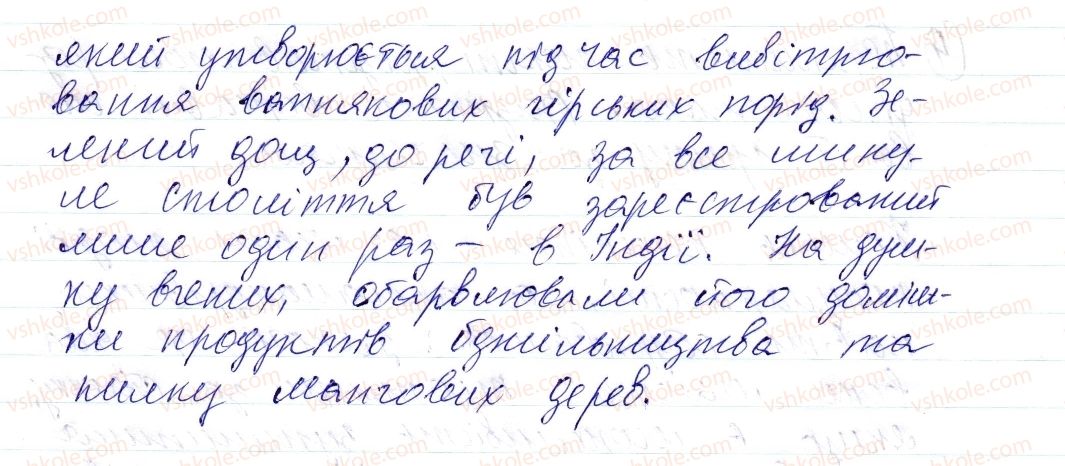 який утворюється під час вивітрю-
вання вапнякових гірських порід. Зе-
лений дощ, до речі, за все мину-
ле століття був зареєстрований
лише один раз – в Індії. На дум-
ку вчених, обарвлювали його доміш-
ки продуктів бджільництва та
пилку мангових дерев.